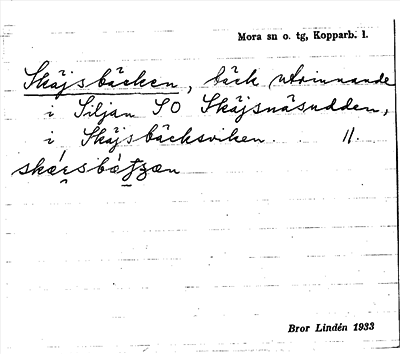 Mora sn o. tg, Kopparb. l.
Skäjsbäcken, bäck utrinnande
i Siljan SO Skäjsnäsudden,
i Skäjsbäcksviken. 11.
Bror Lindén 1933